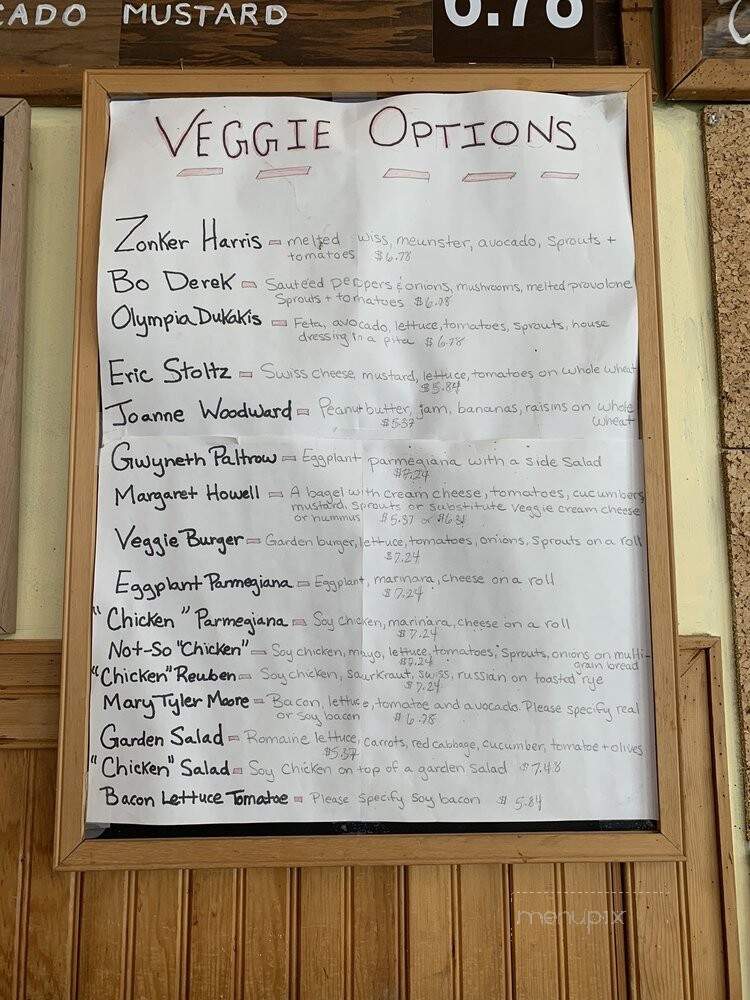 CADO MUSTARD
6.78
VEGGIE OPTIONS
Zonker Harris = melted wiss, meunster, avocado, sprouts +
tomatoes $6.78
Bo Derek - Sauteed peppers & onions, mushrooms, melted provolone
Sprouts + tomatoes $6.78
Olympia Dukakis - Feta, avocado, lettuce, tomatoes, sprouts, house
dressing in a pita $6.78
Eric Stoltz - Swiss cheese, mustard, lettuce, tomatoes on whole wheat
$5.84
Joanne Woodward - Peanut butter, jam, bananas, raisins on whole
wheat
$5.37
Gwyneth Paltrow - Eggplant parmegiana with a side salad
$7.24
Margaret Howell - A bagel with cream cheese, tomatoes, cucumbers
mustard, sprouts or substitute veggie cream cheese
or hummus $5.37 or $6.31
Veggie Burger - Garden burger, lettuce, tomatoes, onions, sprouts on a roll
$7.24
Eggplant Parmegiana - Eggplant, marinara, cheese on a roll
$7.24
"Chicken" Parmegiana - Soy chicken, marinara, cheese on a roll
$7.24
Not-So "Chicken" - Soy chicken, mayo, lettuce, tomatoes, sprouts, onions on multi-
grain bread
$7.24
"Chicken" Reuben - Soy chicken, saurkraut, swiss, russian on toasted rye
$7.24
Mary Tyler Moore - Bacon, lettuce, tomatoe and avocado. Please specify real
or soy bacon $6.78
Garden Salad - Romaine lettuce, carrots, red cabbage, cucumber, tomatoe + olives
$5.37
"Chicken" Salad - Soy chicken on top of a garden salad $7.48
Bacon Lettuce Tomatoe - Please specify soy bacon $5.84
menupix